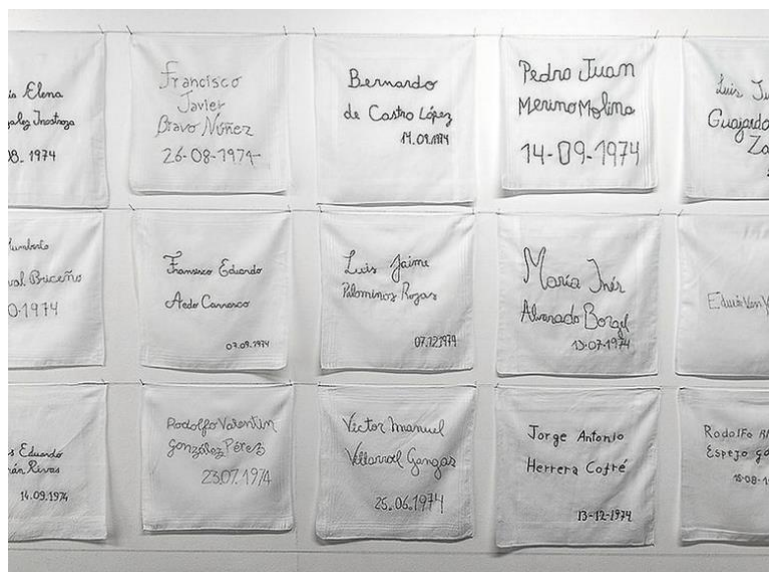 Elena
Inostroza
08. 1974
Francisco
Javier
Bravo Núñez
26-08-1974
Bernardo
de Castro López
14.09.1974
Pedro Juan
Merino Molina
14-09-1974
Luis
Guajardo
Za
Humberto
Briceño
0.1974
Francisco Eduardo
Aedo Carrasco
07.09.1974
Luis Jaime
Palominos Rojas
07.12.1974
María Inés
Alvarado Borgel
15-07-1974
Eduardo
Rivas
14.09.1974
Rodolfo Valentin
González Pérez
23.07.1974
Víctor Manuel
Villarroel Gangas
25.06.1974
Jorge Antonio
Herrera Cofré
13-12-1974
Rodolfo
Espejo